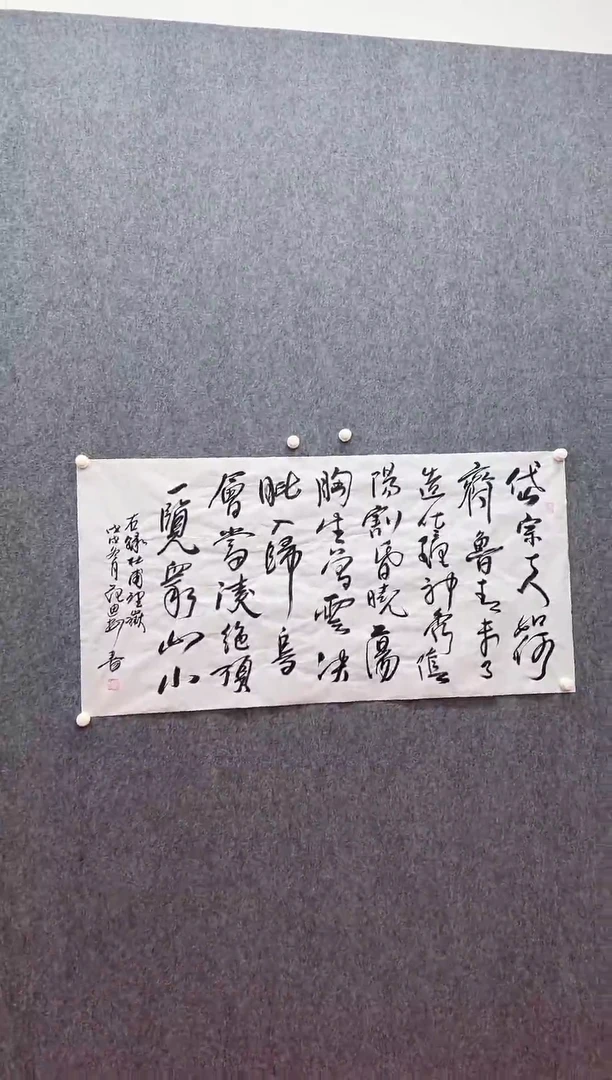 岱宗夫如何
齊魯青未了
造化鍾神秀陰
陽割昏曉蕩
胸生曾雲决
眦入歸鳥
會當凌絶頂
一覽衆山小
右録杜甫望嶽
戊戌 月